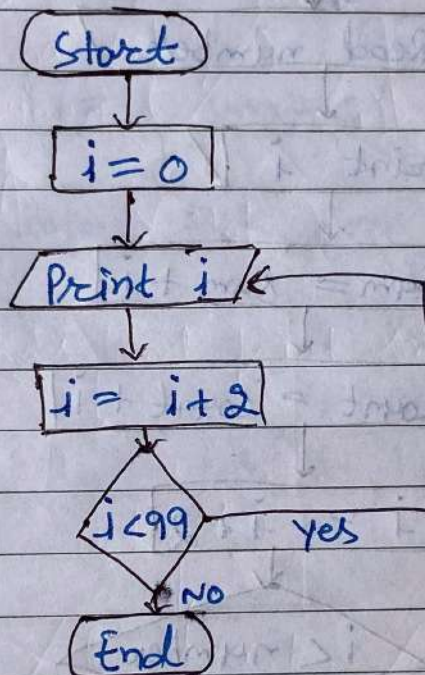 Start
i = 0
Print i
i = i+2
i<99
yes
NO
End